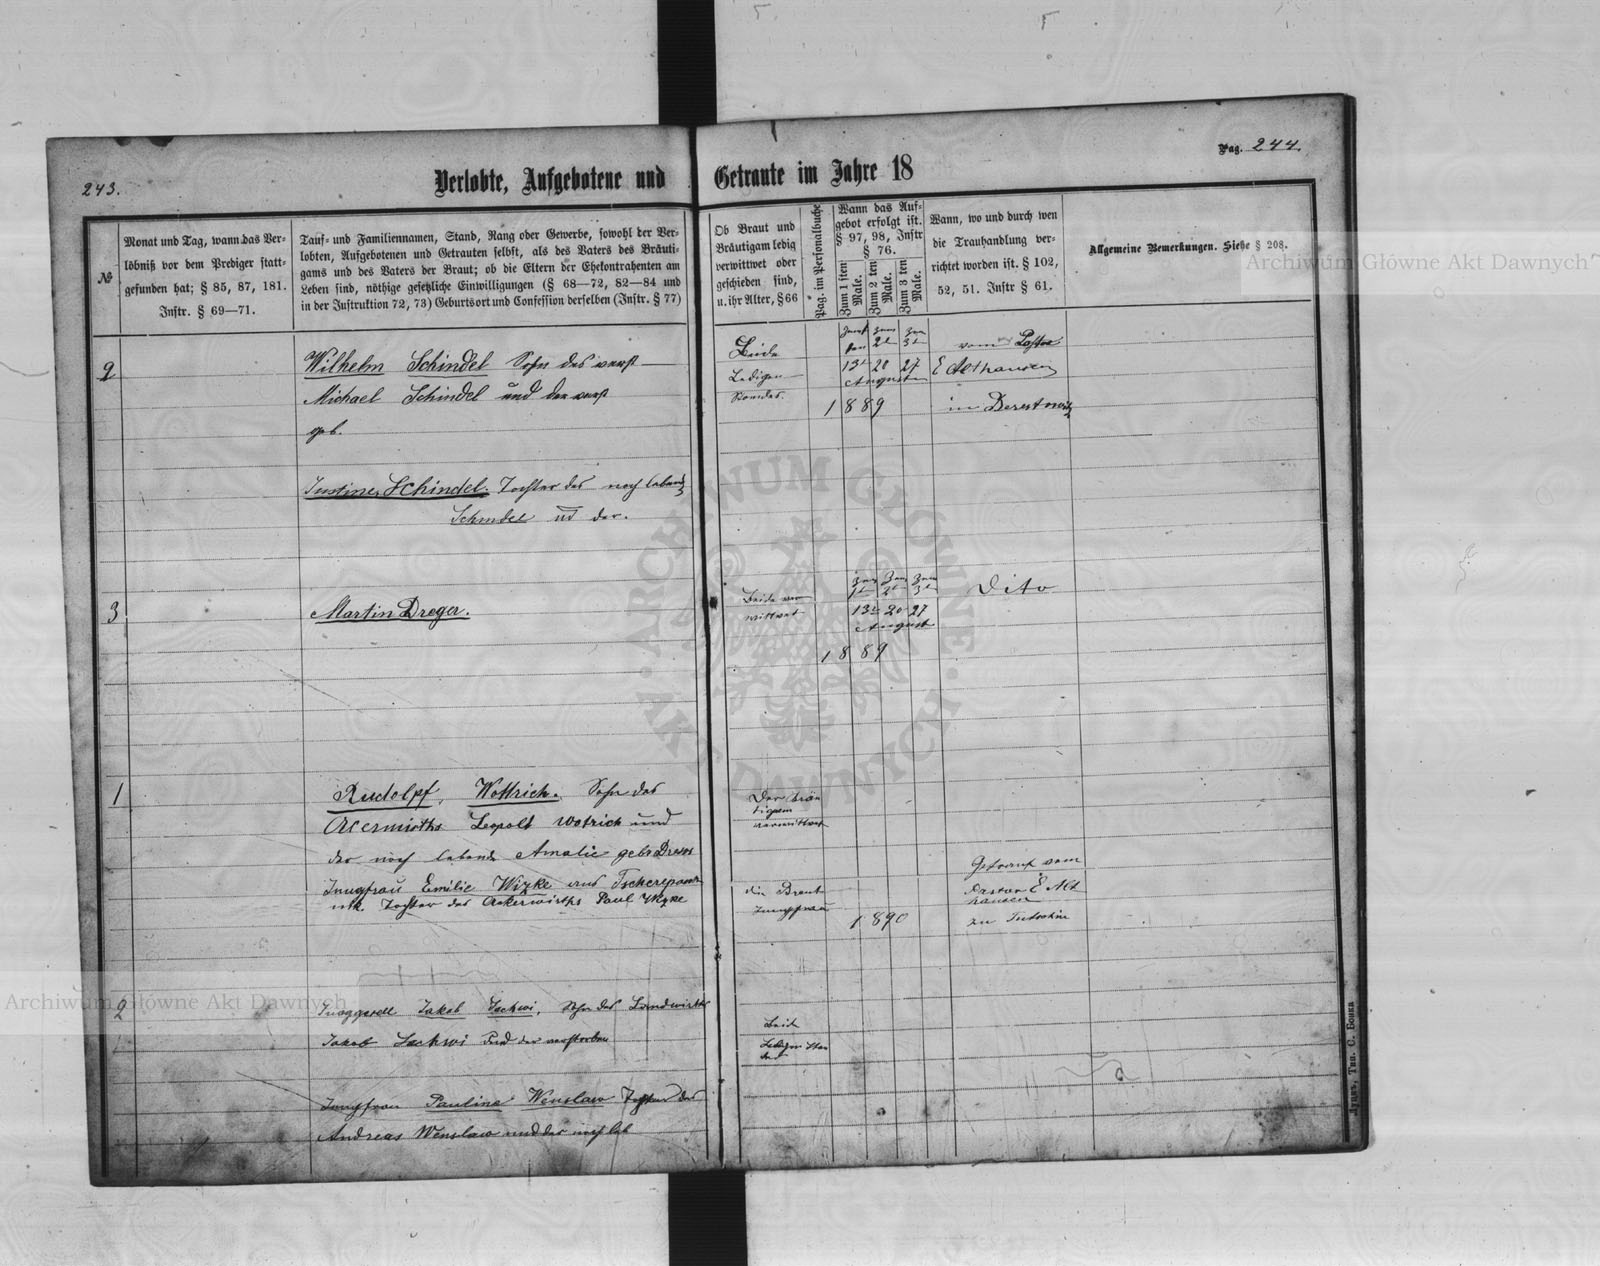 243.
Verlobte, Aufgebotene und
Getraute im Jahre 18
Pag. 244.
№
Monat und Tag, wann das Ver-
löbniß vor dem Prediger statt-
gefunden hat; § 85, 87, 181.
Instr. § 69—71.
Tauf- und Familiennamen, Stand, Rang oder Gewerbe, sowohl der Ver-
lobten, Aufgebotenen und Getrauten selbst, als des Vaters des Bräuti-
gams und des Vaters der Braut; ob die Eltern der Ehekontrahenten am
Leben sind, nöthige gesetzliche Einwilligungen (§ 68—72, 82—84 und
in der Instruktion 72, 73) Geburtsort und Confession derselben (Instr. § 77)
Ob Braut und
Bräutigam ledig
verwittwet oder
geschieden sind,
u. ihr Alter, § 66
Pag. im Personalbuche
Wann das Auf-
gebot erfolgt ist.
§ 97, 98, Instr
§ 76.
Zum 1 sten Male.
Zum 2 ten Male.
Zum 3 ten Male.
Wann, wo und durch wen
die Trauhandlung ver-
richtet worden ist. § 102,
52, 51. Instr § 61.
Allgemeine Bemerkungen. Siehe § 208.
2
Wilhelm Schindel Sohn des verst
Michael Schindel und der verst
geb.
Justine Schindel. Tochter des noch lebend
Schindel ud der.
Beide
Ledigen
Standes.
13 20 27
Augusten
1889
vom Pastor
E Althausen
in
3
Martin Dreger.
Beide ver
wittwet
13 20 27
August
1889
Dito
1
Rudolpf, Wottrich. Sohn des
Acermirths Leopolt Wotrich und
der noch lebend Amalie geb.
Jungfrau Emilie Wizke aus
Tochter des Ackerwirths Paul Wizke
Der Bräu
tigam
verwittwet
die Braut
Jungfrau
1890
Getraut vom
Pastor E Alt
hausen
zu
2
Junggesell Jakob, Sohn des Landwirths
Jakob Und der verstorben
Jungfrau Pauline Wenslaw Tochter des
Andreas Wenslaw und der noch leb
Beide
Ledigen Stan
des
Луцкъ, Тип. С. Бонка
Archiwum Główne Akt Dawnych
Archiwum Główne Akt Dawnych
ARCHIWUM GŁÓWNE
AKT DAWNYCH